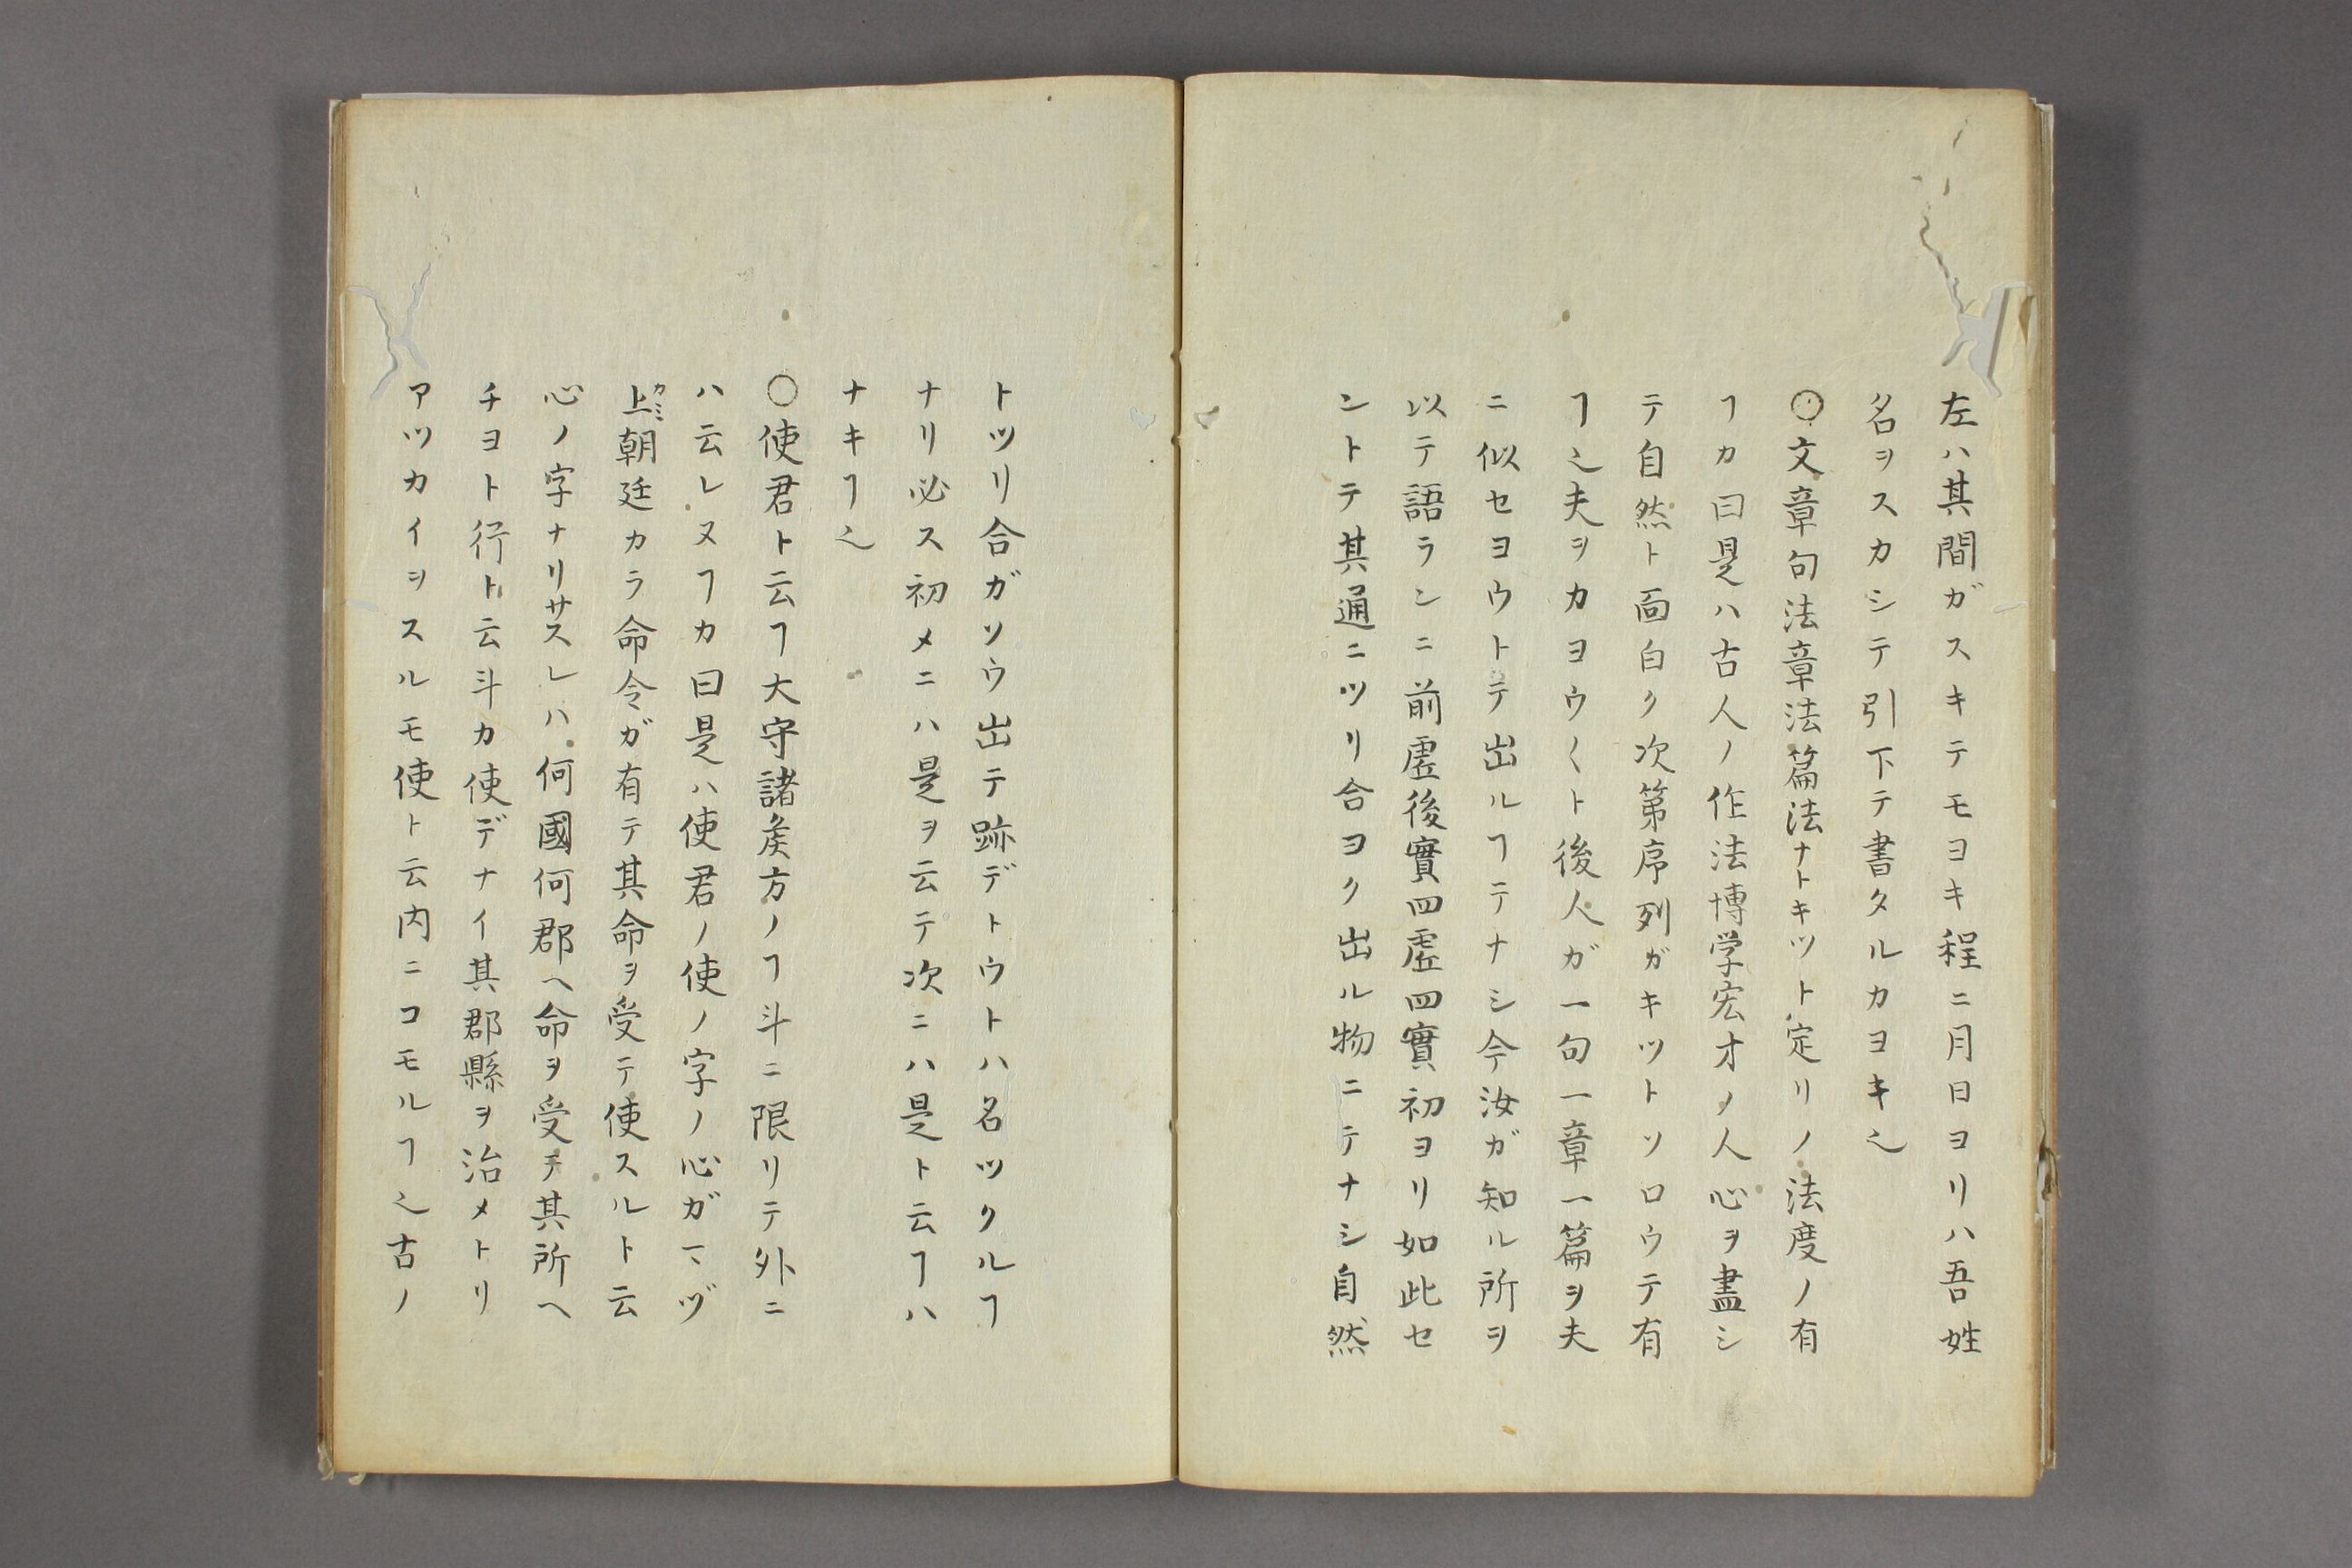 左ハ其間ガスキテモヨキ程ニ月日ヨリハ吾姓
名ヲスカシテ引下テ書タルカヨキ也
○文章句法章法篇法ナトキツト定リノ法度ノ有
ヿカ曰是ハ古人ノ作法博学宏才ノ人心ヲ盡シ
テ自然ト面白ク次第序列ガキツトソロウテ有
ヿ也夫ヲカヨウ〱ト後人ガ一句一章一篇ヲ夫
ニ似セヨウトテ出ルヿテナシ今汝ガ知ル所ヲ
以テ語ランニ前虚後實四虚四實初ヨリ如此セ
ントテ其通ニツリ合ヨク出ル物ニテナシ自然
トツリ合ガソウ出テ跡デトウトハ名ツクルヿ
ナリ必ス初メニハ是ヲ云テ次ニハ是ト云ヿハ
ナキヿ也
○使君ト云ヿ大守諸矦方ノヿ斗ニ限リテ外ニ
ハ云レヌヿカ曰是ハ使君ノ使ノ字ノ心ガマヅ
上カミ朝廷カラ命令ガ有テ其命ヲ受テ使スルト云
心ノ字ナリサスレハ何國何郡ヘ命ヲ受チ其所ヘ
チヨト行ト云斗カ使デナイ其郡縣ヲ治メトリ
アツカイヲスルモ使ト云内ニコモルヿ也古ノ